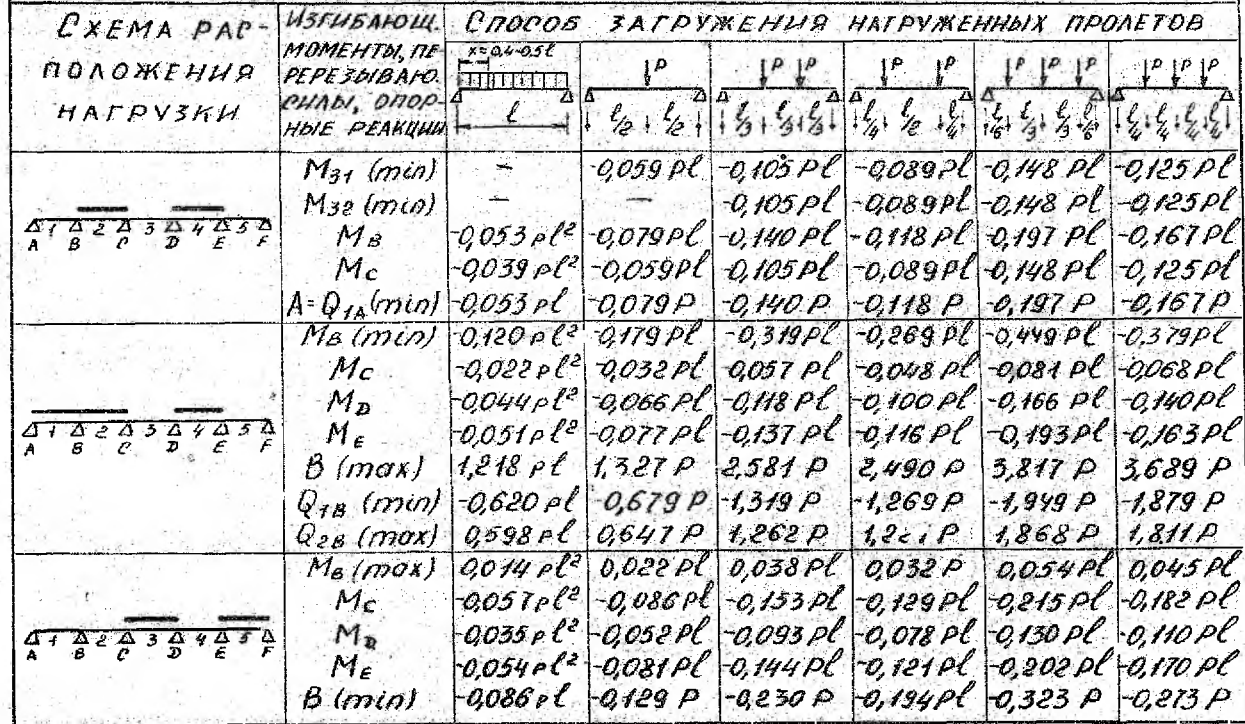 СХЕМА РАС-
ПОЛОЖЕНИЯ
НАГРУЗКИ
ИЗГИБАЮЩ.
МОМЕНТЫ, ПЕ
РЕРЕЗЫВАЮ.
СИЛЫ, ОПОР-
НЫЕ РЕАКЦИИ
СПОСОБ ЗАГРУЖЕНИЯ НАГРУЖЕННЫХ ПРОЛЕТОВ
x=0,4-0,5l
l
P
l/2 l/2
P P
l/3 l/3 l/3
P P
l/4 l/2 l/4
P P P
l/6 l/3 l/3 l/6
P P P
l/4 l/4 l/4 l/4
A 1 B 2 C 3 D 4 E 5 F
M31 (min) – -0,059 Pl -0,105 Pl -0,089 Pl -0,148 Pl -0,125 Pl
M32 (min) – – -0,105 Pl -0,089 Pl -0,148 Pl -0,125 Pl
MB -0,053 pl² -0,079 Pl -0,140 Pl -0,118 Pl -0,197 Pl -0,167 Pl
MC -0,039 pl² -0,059 Pl -0,105 Pl -0,089 Pl -0,148 Pl -0,125 Pl
A=Q1A (min) -0,053 pl -0,079 P -0,140 P -0,118 P -0,197 P -0,167 P
A 1 B 2 C 3 D 4 E 5 F
MB (min) -0,120 pl² -0,179 Pl -0,319 Pl -0,269 Pl -0,449 Pl -0,379 Pl
MC -0,022 pl² -0,032 Pl -0,057 Pl -0,048 Pl -0,081 Pl -0,068 Pl
MD -0,044 pl² -0,066 Pl -0,118 Pl -0,100 Pl -0,166 Pl -0,140 Pl
ME -0,051 pl² -0,077 Pl -0,137 Pl -0,116 Pl -0,193 Pl -0,163 Pl
B (max) 1,218 pl 1,327 P 2,581 P 2,490 P 3,817 P 3,689 P
Q1B (min) -0,620 pl -0,679 P -1,319 P -1,269 P -1,949 P -1,879 P
Q2B (max) 0,598 pl 0,647 P 1,262 P 1,868 P 1,811 P
A 1 B 2 C 3 D 4 E 5 F
MB (max) 0,014 pl² 0,022 Pl 0,038 Pl 0,032 P 0,054 Pl 0,045 Pl
MC -0,057 pl² -0,086 Pl -0,153 Pl -0,129 Pl -0,215 Pl -0,182 Pl
MD -0,035 pl² -0,052 Pl -0,093 Pl -0,078 Pl -0,130 Pl -0,110 Pl
ME -0,054 pl² -0,081 Pl -0,144 Pl -0,121 Pl -0,202 Pl -0,170 Pl
B (min) -0,086 pl -0,129 P -0,230 P -0,194 Pl -0,323 P -0,273 P